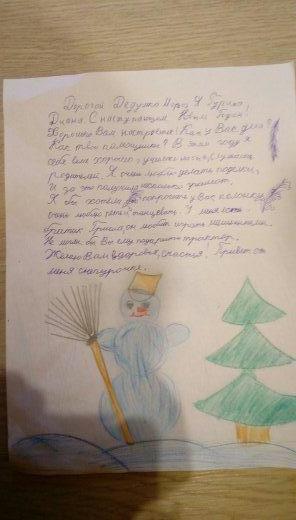 Дорогой Дедушка Мороз, Я
Диана. С наступающим Новым Годом,
Хорошего Вам настроения! Как у Вас дела?
Как твои помощники? В этом году я
себя вела хорошо, училась на 4 и 5, слушалась
родителей. Я очень люблю делать поделки,
И за это получила несколько грамот.
Я бы хотела попросить у Вас колонку,
очень люблю петь и танцевать. У меня есть
братик Гриша, он любит играть машинками.
Не могли бы Вы ему подарить трактор.
Желаю Вам здоровья, счастья! Привет от
меня снегурочке.